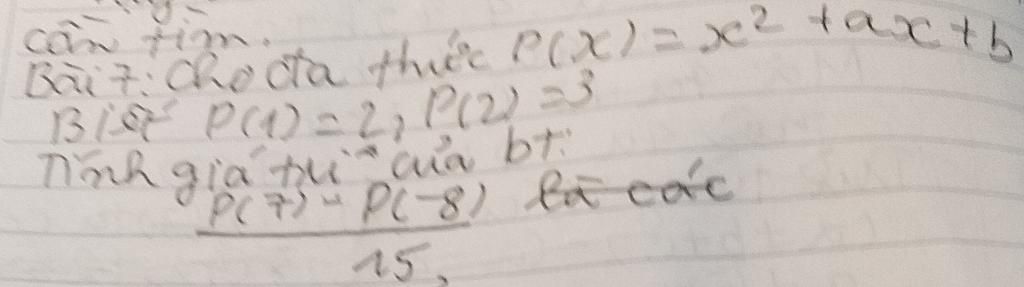 cần tìm.
Bài 7: Cho đa thức P(x) = x² + ax + b
Biết P(1) = 2, P(2) = 3
Tính giá trị của bt:
P(7) - P(-8) là các
15,